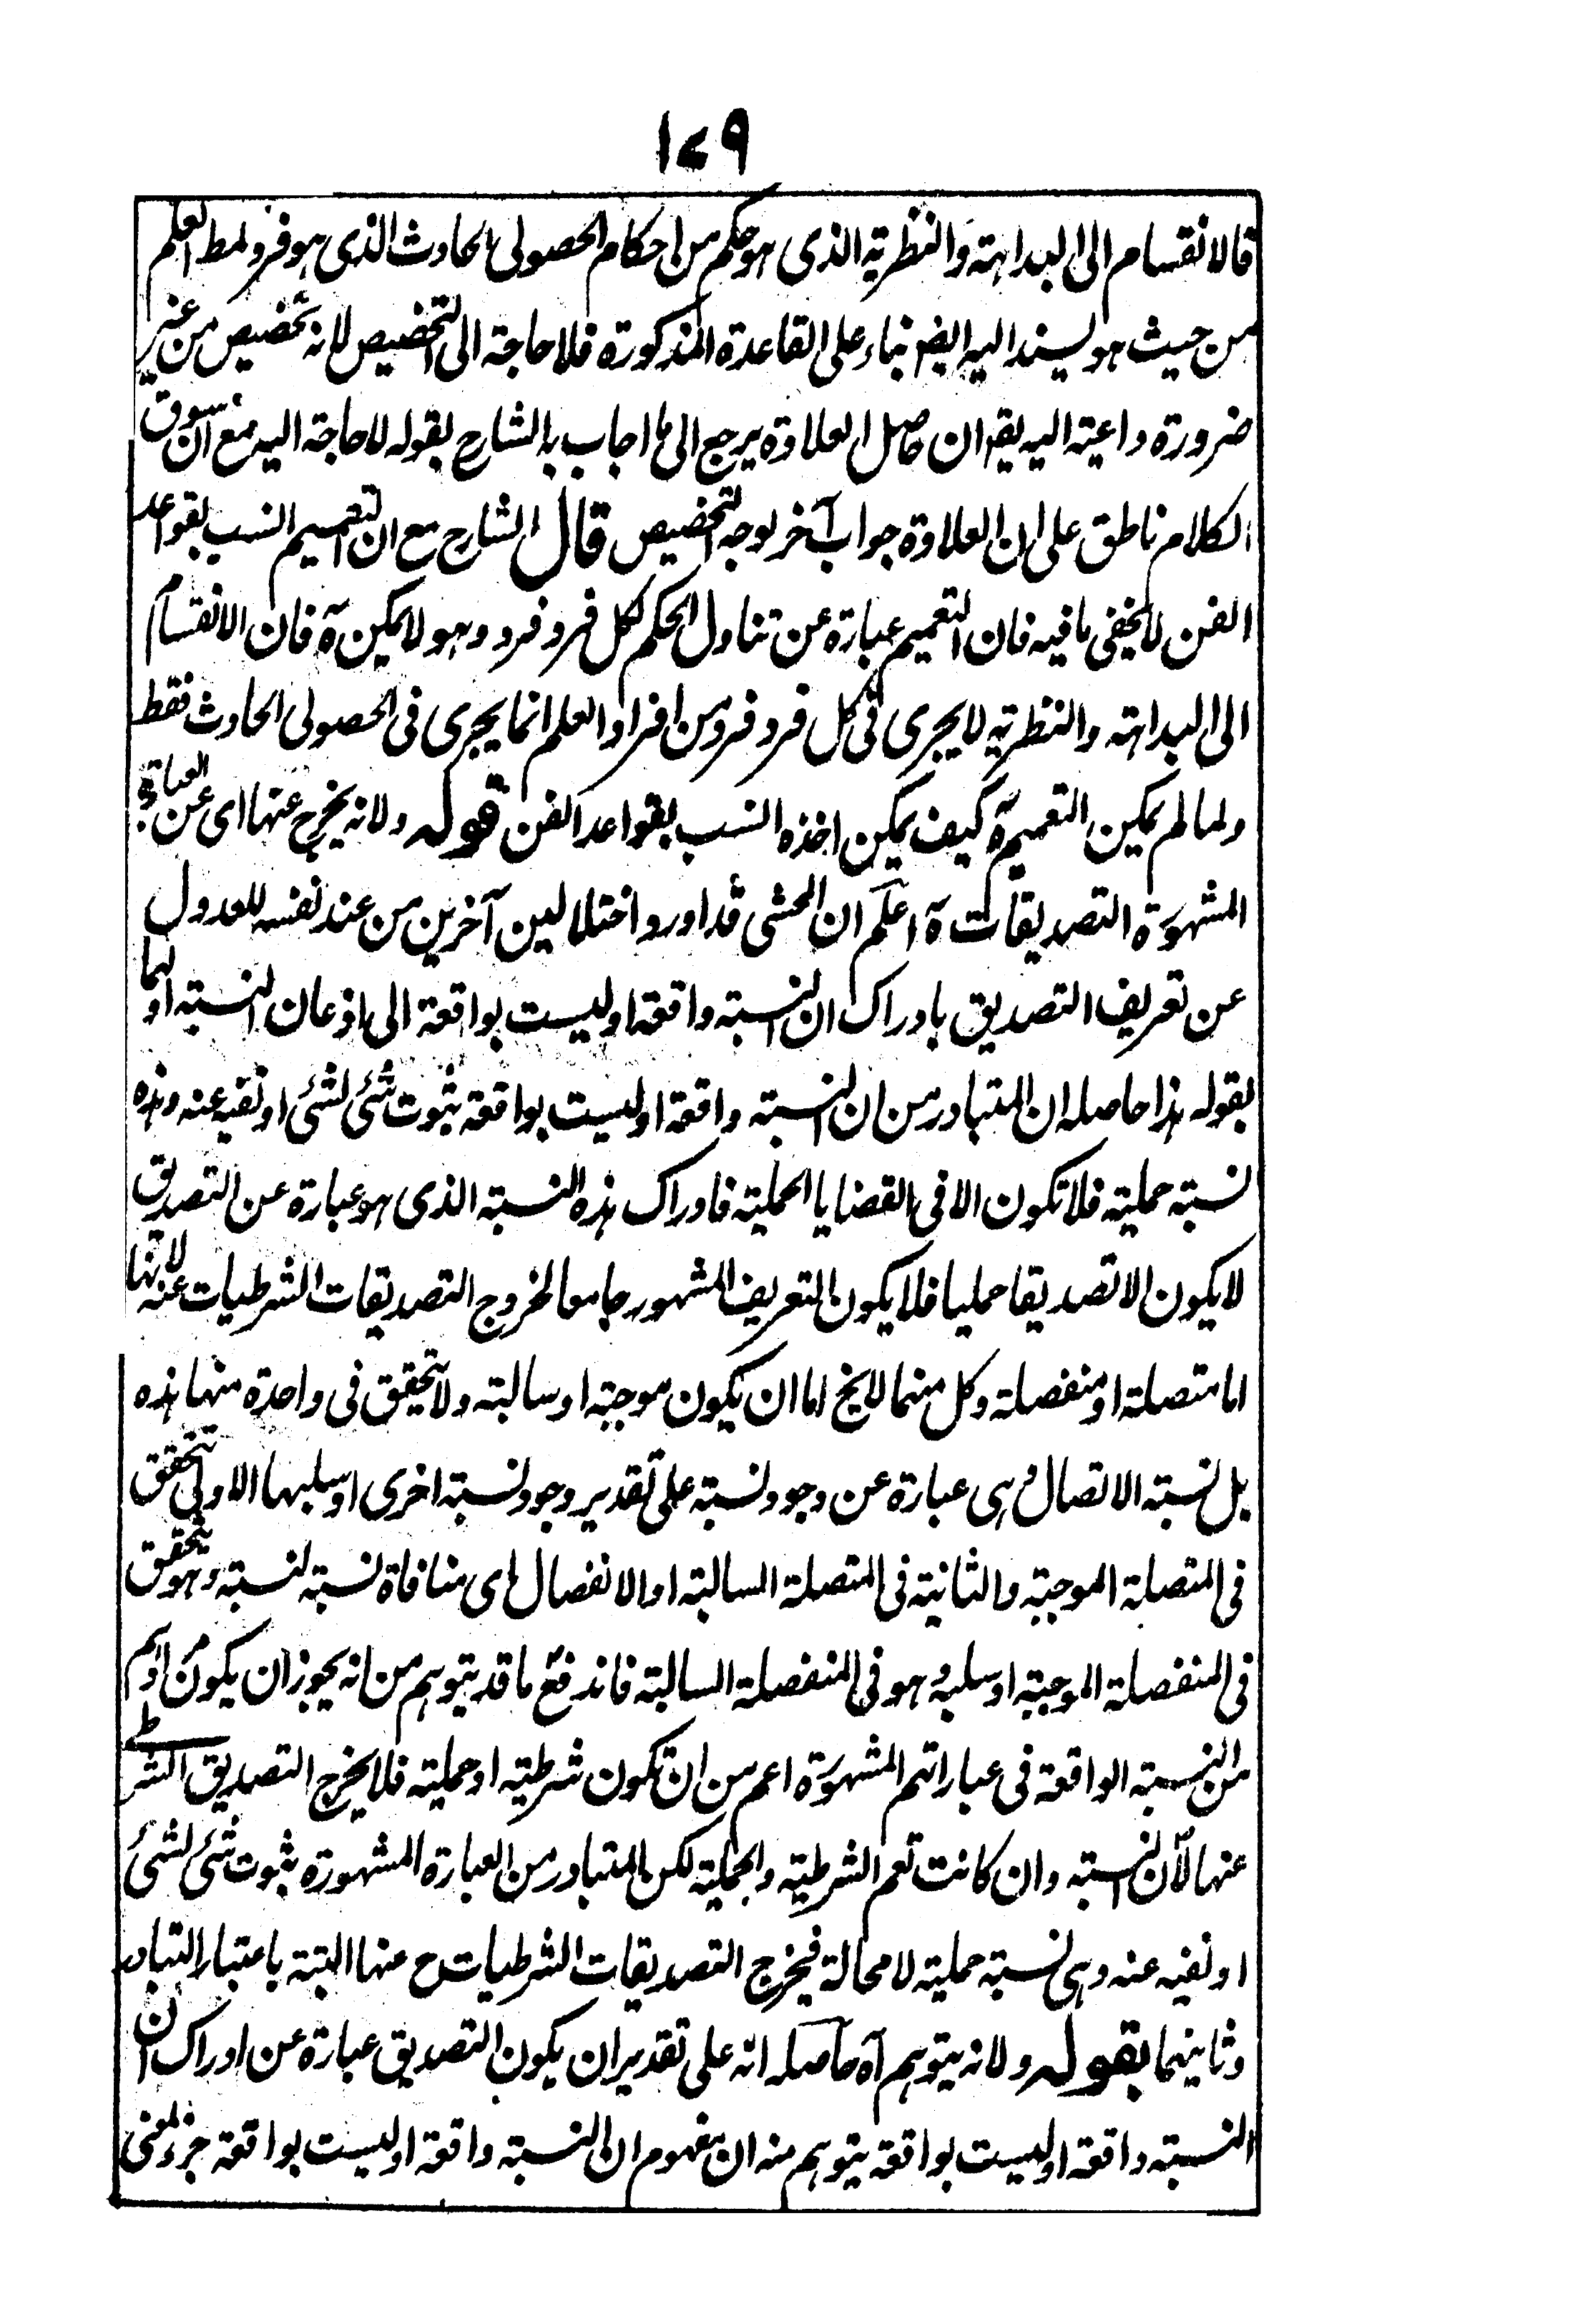 ١٧٩
فالانقسام الى البداهة والنظرية الذى هو حكم من احكام الحصولى الحادث الذى هو فرد لمط العلم
من حيث هو يسند اليه ايضو بناء على القاعدة المذكورة فلا حاجة الى التخصيص لانه تخصيص من غير
ضرورة داعية اليه يقو ان حاصل العلاوة يرجع الى ما اجاب به الشارح بقوله لا حاجة اليه مع ان سوق
الكلام ناطق على ان العلاوة جواب آخر لوجه التخصيص قال الشارح مع ان التعميم انسب بقواعد
الفن لا يخفى ما فيه فان التعميم عبارة عن تناول الحكم لكل فرد فرد وهو لا يمكن ة فان الانقسام
الى البداهة والنظرية لا يجرى فى كل فرد فرد من افراد العلم انما يجرى فى الحصولى الحادث فقط
ولما لم يمكن التعميم ة كيف يمكن اخذه انسب بقواعد الفن قوله ولانه يخرج عنها اى عن العبارة
المشهورة التصديقات ة اعلم ان المحشى قد اورد اختلالين آخرين من عند نفسه للعدول
عن تعريف التصديق بادراك ان النسبة واقعة او ليست بواقعة الى اذعان النسبة اولهما
بقوله هذا حاصله ان المتبادر من ان النسبة واقعة او ليست بواقعة ثبوت شئ لشئ او نفيه عنه وهذه
نسبة حملية فلا تكون الا فى القضايا الحملية فادراك هذه النسبة الذى هو عبارة عن التصديق
لا يكون الا تصديقا حمليا فلا يكون التعريف المشهور جامعا لخروج التصديقات الشرطيات عنه لانها
اما متصلة او منفصلة وكل منهما لا يخ اما ان يكون موجبة او سالبة ولا تتحقق فى واحدة منها هذه
بل نسبة الاتصال وهى عبارة عن وجود نسبة على تقدير وجود نسبة اخرى او سلبها الاولى تتحقق
فى المتصلة الموجبة والثانية فى المتصلة السالبة او الانفصال اى منافاة نسبة لنسبة وهو يتحقق
فى المنفصلة الموجبة او سلبه وهو فى المنفصلة السالبة فاندفع ما قد يتوهم من انه يجوز ان يكون مرادهم
من النسبة الواقعة فى عباراتهم المشهورة اعم من ان تكون شرطية او حملية فلا يخرج التصديق الشرطى
عنها لان النسبة وان كانت تعم الشرطية والحملية لكن المتبادر من العبارة المشهورة ثبوت شئ لشئ
او نفيه عنه وهى نسبة حملية لا محالة فيخرج التصديقات الشرطيات ح عنها البتة باعتبار التبادر
وثانيهما بقوله ولانه يتوهم آه حاصله انه على تقدير ان يكون التصديق عبارة عن ادراك ان
النسبة واقعة او ليست بواقعة يتوهم منه ان مفهوم ان النسبة واقعة او ليست بواقعة جزء لمعنى